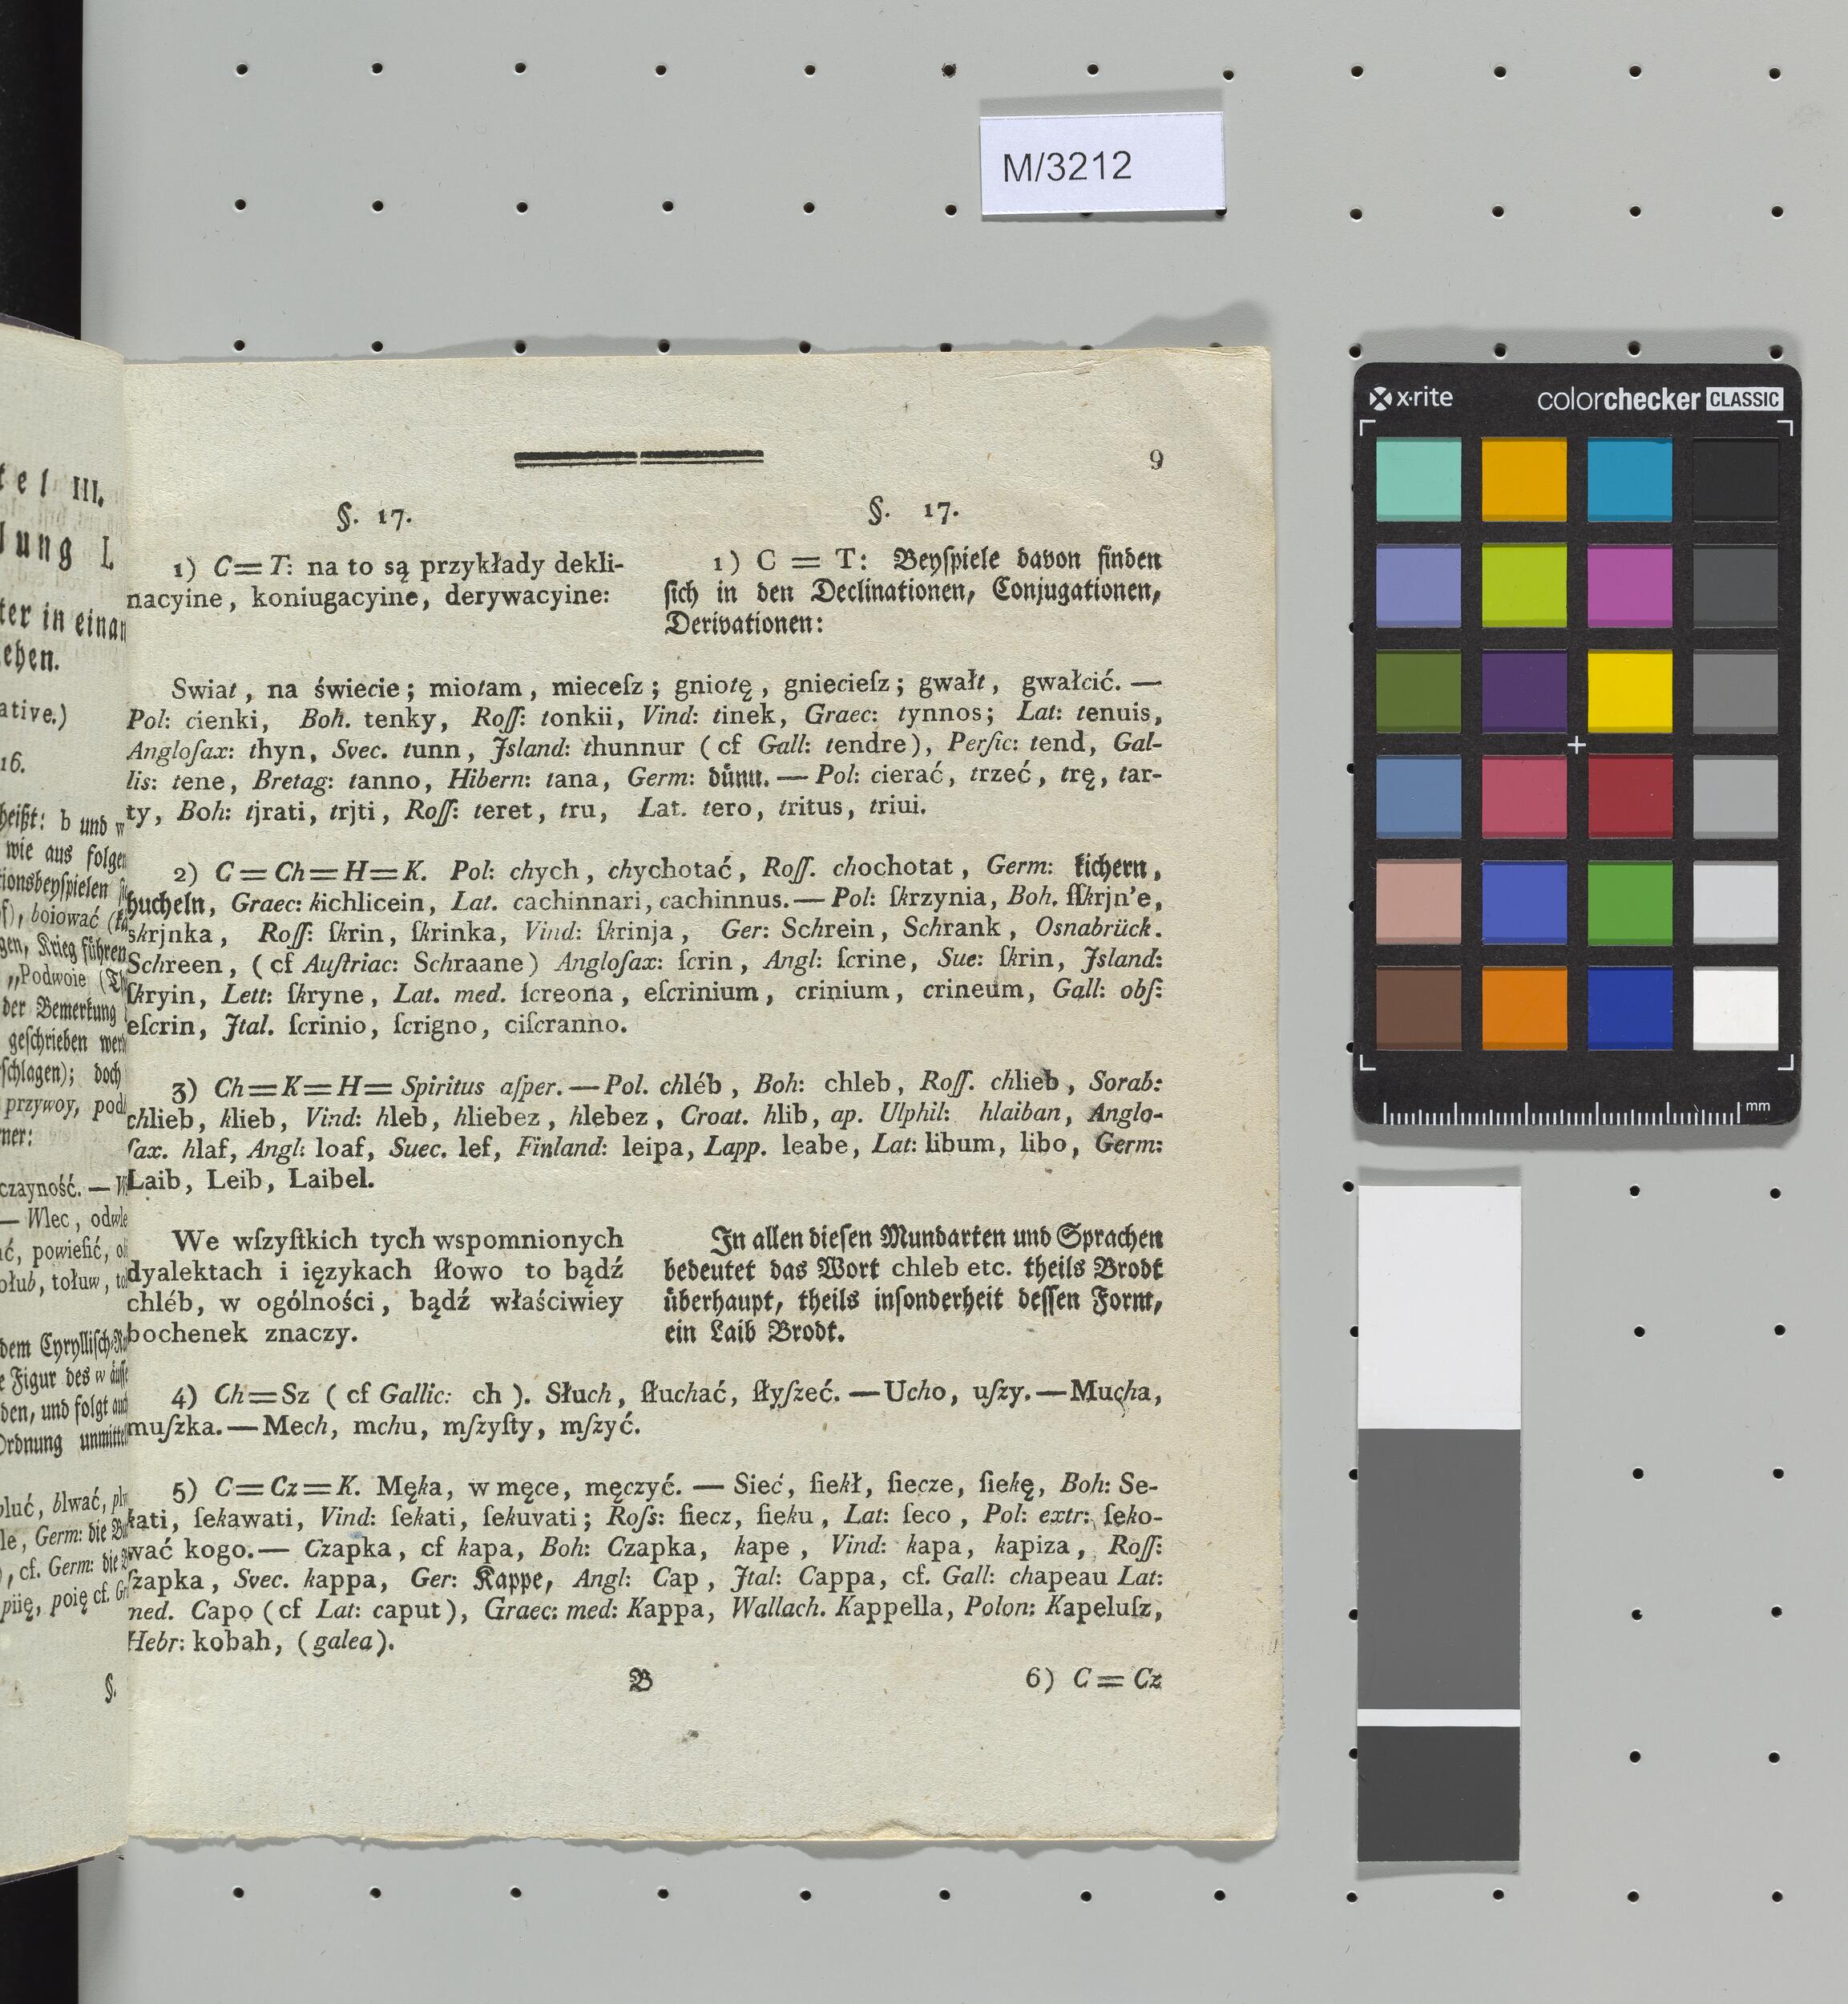 M/3212
x·rite colorchecker CLASSIC
mm
tel III.
lung I.
ter in einan
ehen.
ative.)
16.
heißt: b und w
wie aus folgen
tionsbeyspielen
boiować
gen, Krieg führen
„Podwoie
der Bemerkung
geschrieben werd
schlagen); doch
przywoy, pod
ner:
czayność. —
— Wlec, odwle
ać, powiesić,
ołub, tołuw,
dem Cyryllisch
e Figur des w
den, und folgt auch
Ordnung unmittel
pluć, blwać, plw
le, Germ: die
), cf. Germ: die
piię, poię cf. Gr
§.
9
§. 17.
1) C=T: na to są przykłady dekli-
nacyine, koniugacyine, derywacyine:
§. 17.
1) C = T: Beyſpiele davon finden
ſich in den Declinationen, Conjugationen,
Derivationen:
Swiat, na świecie; miotam, mieceſz; gniotę, gnieciеſz; gwałt, gwałcić. —
Pol: cienki, Boh. tenky, Roſſ: tonkii, Vind: tinek, Graec: tynnos; Lat: tenuis,
Angloſax: thyn, Svec. tunn, Jsland: thunnur (cf Gall: tendre), Perſic: tend, Gal-
lis: tene, Bretag: tanno, Hibern: tana, Germ: dünn. — Pol: cierać, trzeć, trę, tar-
ty, Boh: tjrati, trjti, Roſſ: teret, tru, Lat. tero, tritus, triui.
2) C=Ch=H=K. Pol: chych, chychotać, Roſſ. chochotat, Germ: kichern,
hucheln, Graec: kichlicein, Lat. cachinnari, cachinnus. — Pol: ſkrzynia, Boh. ſſkrjn'e,
skrjnka, Roſſ: ſkrin, ſkrinka, Vind: ſkrinja, Ger: Schrein, Schrank, Osnabrück.
Schreen, (cf Auſtriac: Schraane) Angloſax: ſcrin, Angl: ſcrine, Sue: ſkrin, Jsland:
ſkryin, Lett: ſkryne, Lat. med. ſcreona, eſcrinium, crinium, crineum, Gall: obſ:
eſcrin, Jtal. ſcrinio, ſcrigno, ciſcranno.
3) Ch=K=H= Spiritus aſper. — Pol. chléb, Boh: chleb, Roſſ. chlieb, Sorab:
chlieb, klieb, Vind: hleb, hliebez, hlebez, Croat. hlib, ap. Ulphil: hlaiban, Anglo-
ſax. hlaf, Angl: loaf, Suec. lef, Finland: leipa, Lapp. leabe, Lat: libum, libo, Germ:
Laib, Leib, Laibel.
We wſzyſtkich tych wspomnionych
dyalektach i ięzykach ſłowo to bądź
chléb, w ogólności, bądź właściwiey
bochenek znaczy.
In allen dieſen Mundarten und Sprachen
bedeutet das Wort chleb etc. theils Brodt
überhaupt, theils inſonderheit deſſen Form,
ein Laib Brodt.
4) Ch=Sz (cf Gallic: ch). Słuch, ſłuchać, ſłyſzeć. — Ucho, uſzy. — Mucha,
muſzka. — Mech, mchu, mſzyſty, mſzyć.
5) C=Cz=K. Męka, w męce, męczyć. — Sieć, ſiekł, ſiecze, ſiekę, Boh: Se-
kati, ſekawati, Vind: ſekati, ſekuvati; Roſs: ſiecz, ſieku, Lat: ſeco, Pol: extr: ſeko-
wać kogo. — Czapka, cf kapa, Boh: Czapka, kape, Vind: kapa, kapiza, Roſſ:
ſzapka, Svec. kappa, Ger: Kappe, Angl: Cap, Jtal: Cappa, cf. Gall: chapeau Lat:
med. Capo (cf Lat: caput), Graec: med: Kappa, Wallach. Kappella, Polon: Kapeluſz,
Hebr: kobah, (galea).
B
6) C = Cz